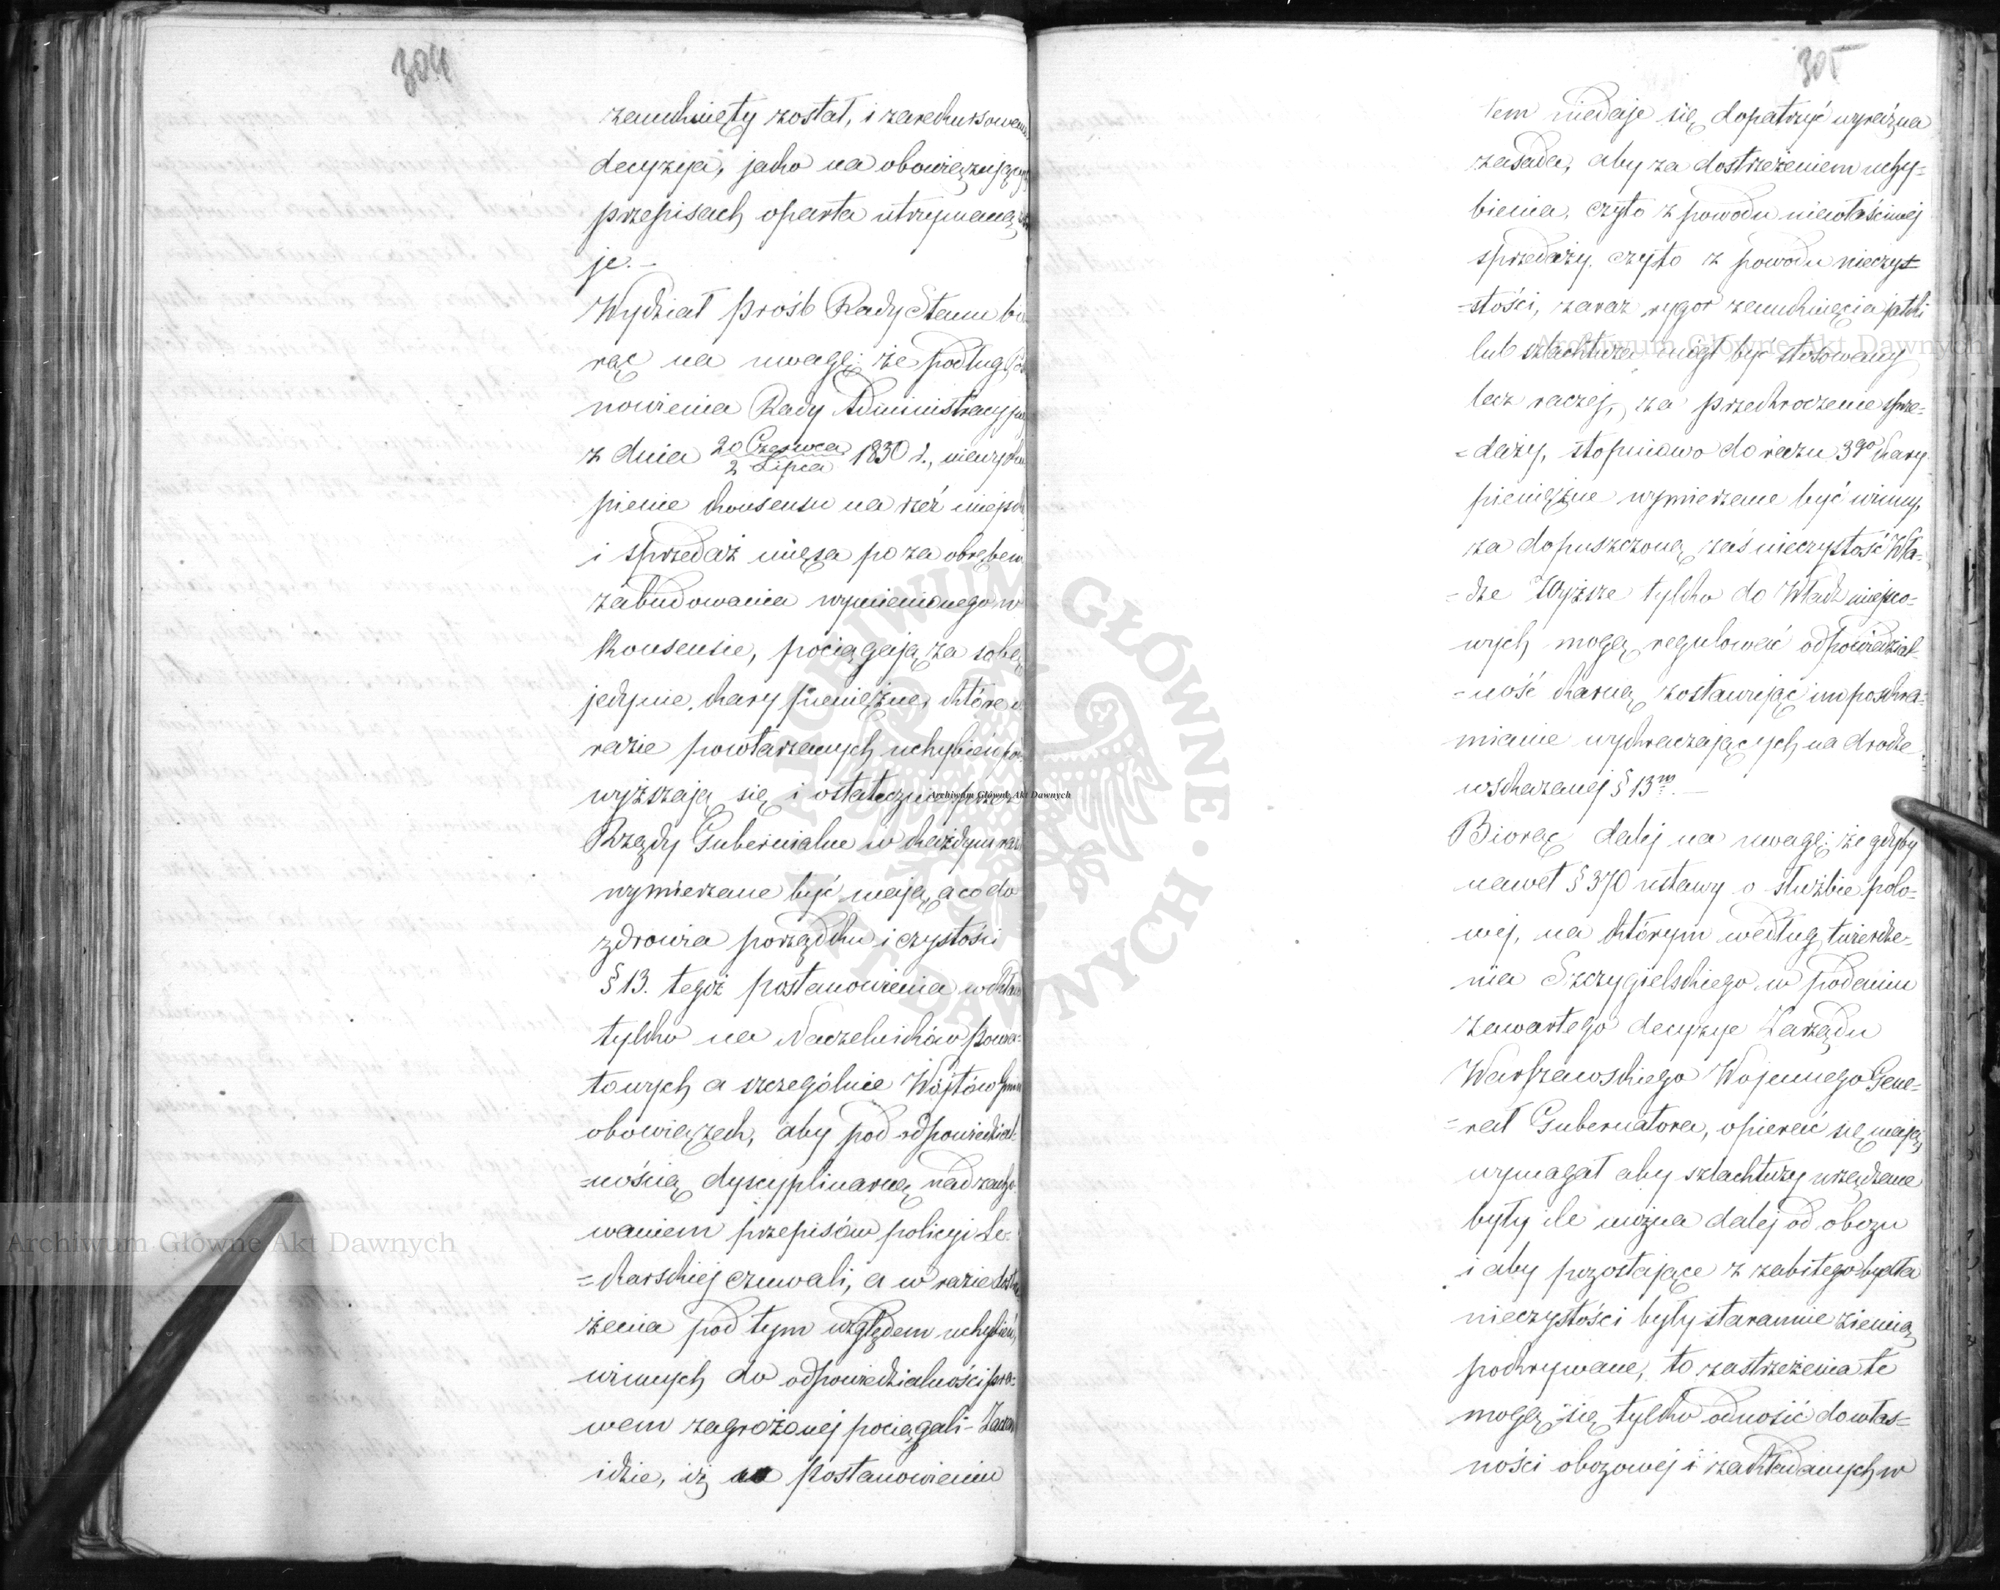 304
zamknięty został, i zarekursowana
decyzja, jako na obowiązujących
przepisach oparta utrzymaną zo
je.—
Wydział prośb Rady Stanu bio
rąc na uwagę: że podług Posta
nowienia Rady Administracyjnej
z dnia 20 Czerwca / 2 Lipca 1830 r., niewyku
pienie konsensu na rzeź miejsk
i sprzedaż mięsa po za obrębem
zabudowania wymienionego w
Konsensie, pociągają za sobą
jedynie kary pieniężne, które w
razie powtarzanych uchybień po-
wyższają się i ostatecznie przez
Rządy Gubernialne w każdym razie
wymierzane być mają, a co do
zdrowia porządku i czystości
§ 13. tegoż postanowienia wkłada
tylko na Naczelników Powia-
towych a szczególnie Wójtów gmin
obowiązek, aby pod odpowiedzial-
=nością dyscyplinarną nad zacho-
waniem przepisów policyi Le-
=karskiej czuwali, a w razie dostrze
żenia pod tym względem uchybień,
winnych do odpowiedzialności pra-
wem zagrożonej pociągali – Zatem
idzie, iż w postanowieniu
305
tem niedaje się dopatrzyć wyraźna
zasada, aby za dostrzeżeniem uchy-
bienia, czyto z powodu niewłaściwej
sprzedaży, czyto z powodu nieczyst
=stości, zaraz rygor zamknięcia jatki
lub szlachtuza mógł być stosowany,
lecz raczej, za przekroczenie sprze-
=daży, stopniowo do razu 3go kary
pieniężne wymierzane być winny,
za dopuszczoną zaś nieczystość Wła-
=dze Wyższe tylko do Władz miejsco-
wych mogą regulować odpowiedzial-
=ność karną zostawując im poskra-
mianie wykraczających na drodze
wskazanej § 13m.—
Biorąc dalej na uwagę: że gdyby
nawet § 370 ustawy o służbie polo-
wej, na którym według twierdze-
nia Szczygielskiego w podaniu
zawartego decyzye Zarządu
Warszawskiego Wojennego Gene-
=rał Gubernatora, opierać się mają,
wymagał aby szlachtuzy urządzane
były ile można dalej od obozu
i aby pozostające z zabitego bydła
nieczystości były starannie ziemią
pokrywane, to zastrzeżenia te
mogą się tylko odnosić do włas-
ności obozowej i zakładanych w
Archiwum Główne Akt Dawnych
Archiwum Główne Akt Dawnych
Archiwum Główne Akt Dawnych
ARCHIWUM GŁÓWNE AKT DAWNYCH